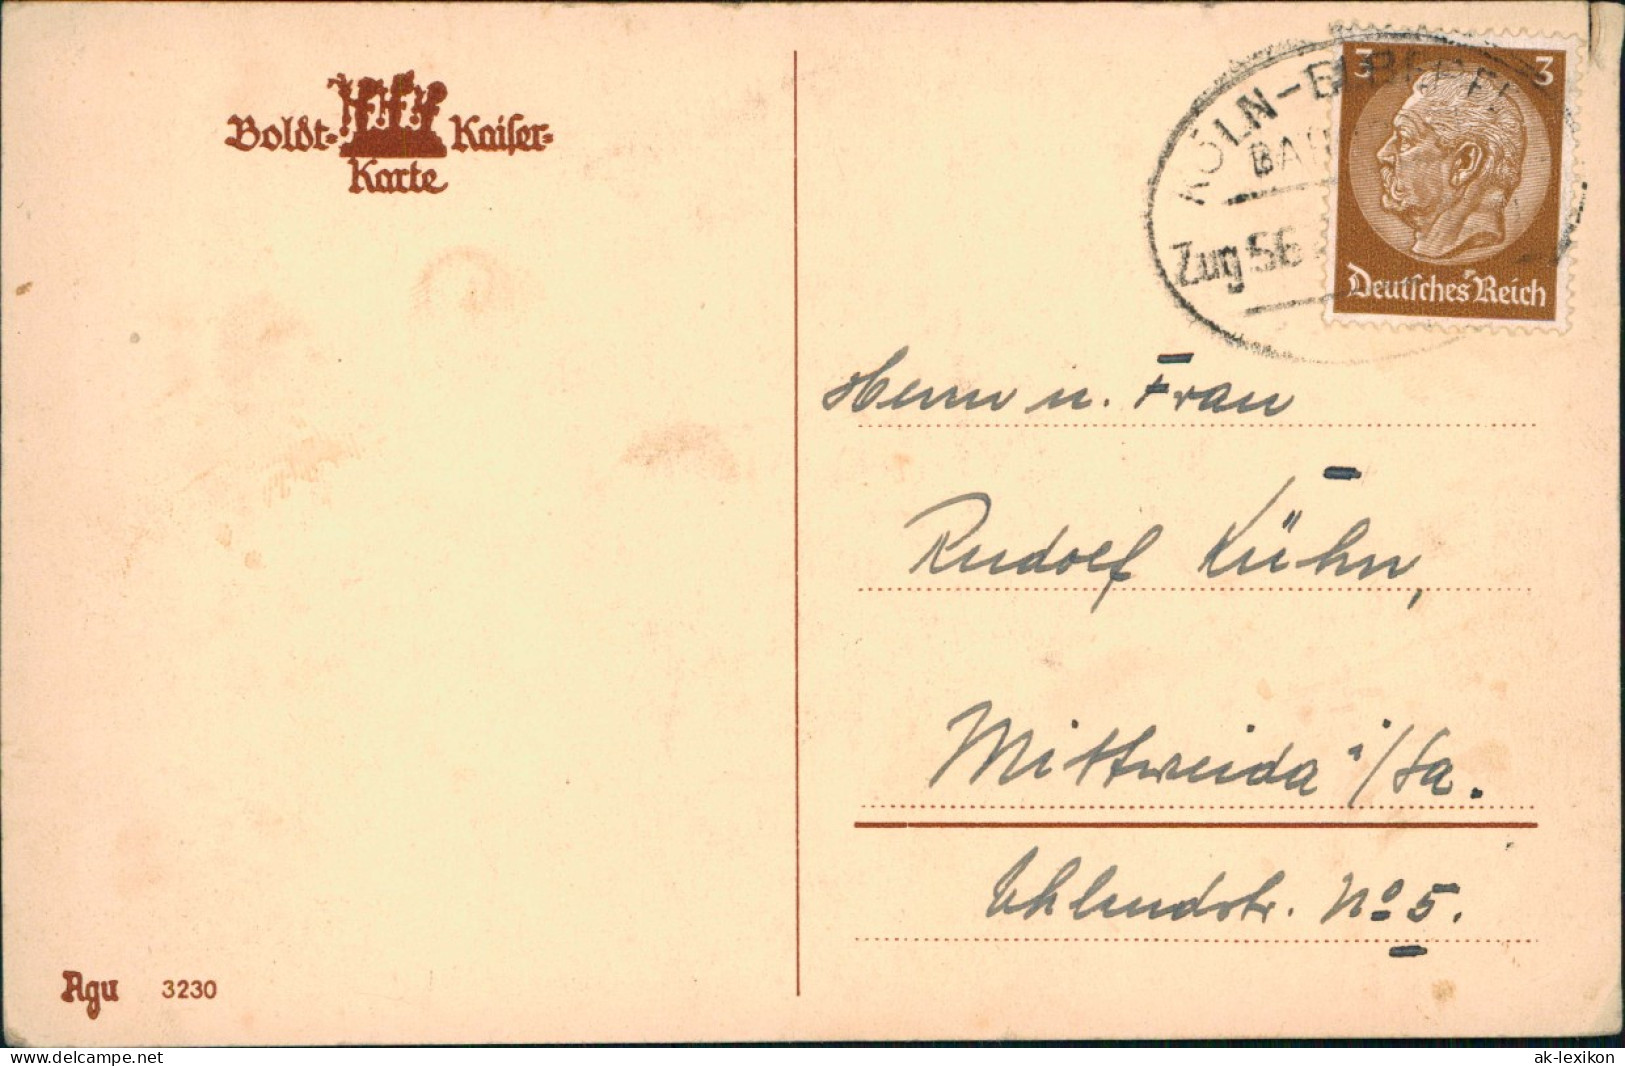 Boldt- Kaiser-
Karte
KÖLN-ELBERFEL
BA
Zug 56
3 3
Deutsches Reich
Herrn u. Frau
Rudolf Kühn,
Mittweida i/Sa.
Uhlandstr. No 5.
Agu 3230
www.delcampe.net
ak-lexikon